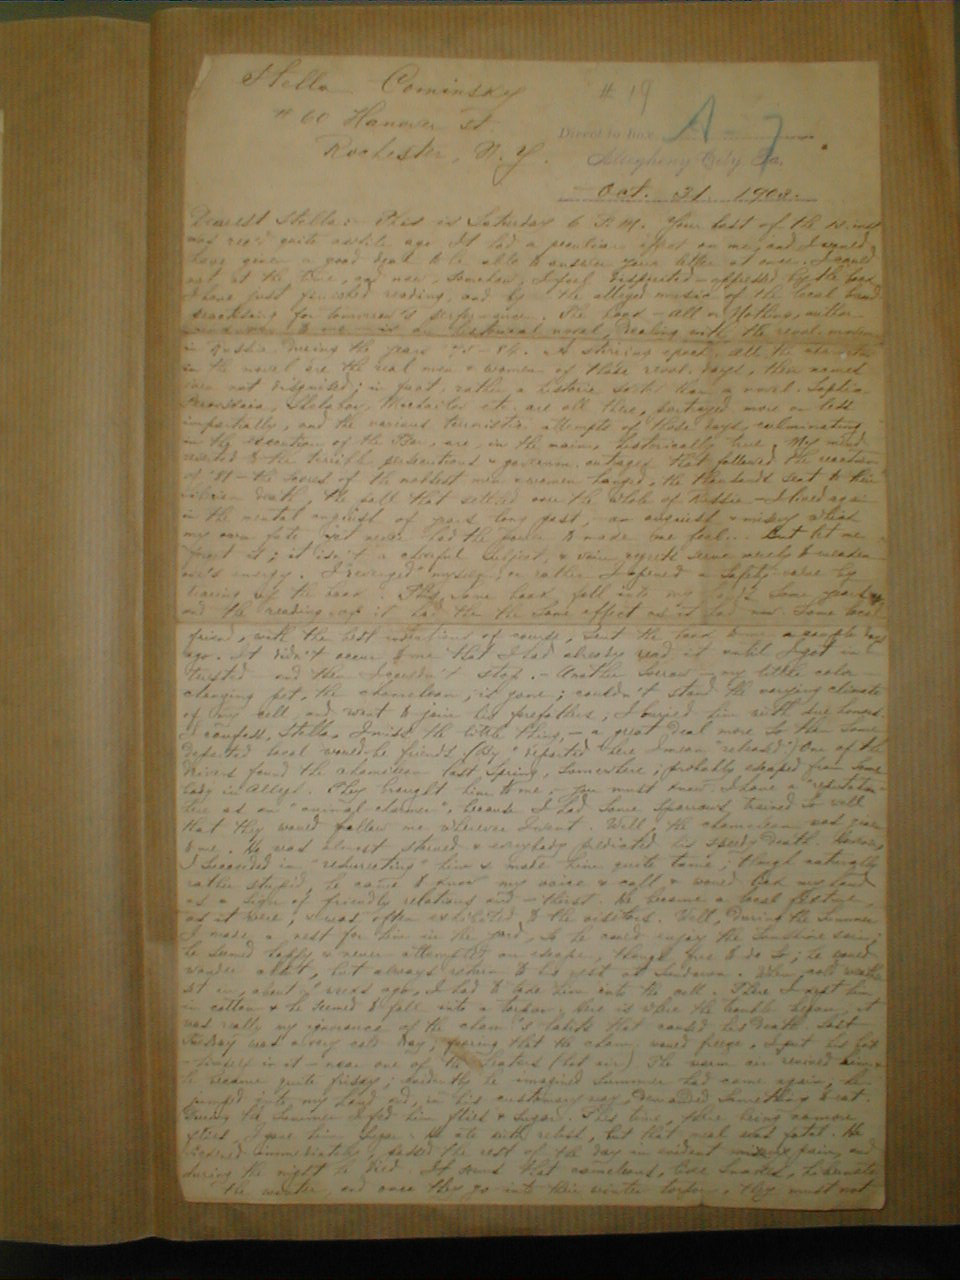 Stella Cominsky
# 60 Hanover St.
Rochester, N. Y.
# 19
Direct to box A - 7
Allegheny City Pa.
Oct. 31 1903.
Dearest Stella: - This is Saturday 6 P.M. Your last of the 13 inst
was rec'd quite awhile ago. It had a peculiar effect on me, and I would
have given a good deal to be able to answer your letter at once. I could
not at the time, and now, somehow, I feel dispirited - oppressed by the book
I have just finished reading, and by the alleged music of the local band
practising for tomorrow's performance. The book - All or Nothing, author
is a historical novel, dealing with the revol. movem.
in Russia during the years '75 - 84. A stirring epoch, all the characters
in the novel are the real men & women of those revol. days, their names
even not disguised; in fact, rather a historic than a novel. Sophia
Perovskaia, Zheliabov, Michailov etc. are all there, portrayed more or less
impartially, and the various terroristic attempts of those days, culminating
in the execution of the Tsar, are, in the main, historically true. My mind
reverted to the terrible persecutions & governm. outrages that followed the reaction
of '81 - the scores of the noblest men & women hanged, the thousands sent to their
Siberian death, the pall that settled over the whole of Russia - I lived again
in the mental anguish of years long past, - an anguish & misery which
my own fate had never had the power to make me feel... But let me
forget it; it isn't a cheerful subject, & vain regrets serve merely to weaken
one's energy. I "revenged" myself, or rather I opened a safety-valve by
tearing up the book. This same book fell into my hands some years
and the reading of it had then the same effect as it had now. Some local
friend, with the best intentions of course, sent the book to me a couple days
ago. It didn't occur to me that I had already read it until I got in-
terested - and then I couldn't stop. - Another sorrow - my little color-
changing pet, the chameleon, is gone; couldn't stand the varying climate
of my cell, and went to join his forefathers, I buried him with due honors.
I confess, Stella, I miss the little thing, - a great deal more so than some
departed local would-be friends. (By "departed" here I mean "released") One of the
drivers found the chameleon last Spring, somewhere; probably escaped from some
body in Allegh. They brought him to me, - you must know I have a "reputation"
here as an "animal charmer", because I had some sparrows trained so well
that they would follow me wherever I went. Well, the chameleon was given
to me. He was almost starved & everybody predicted his speedy death. However,
I succeeded in "resurrecting" him & made him quite tame; though naturally
rather stupid, he came to know my voice & call & would lick my hand
as a sign of friendly relations and - thirst. He became a local fixture,
as it were, & was often exhibited to the visitors. Well, during the Summer
I made a nest for him in the yard, so he could enjoy the sunshine
he seemed happy & never attempted an escape, though free to do so; he would
wander about, but always return to his nest at sundown. When cold weather
set in, about 2 weeks ago, I had to take him into the cell. There I kept him
in cotton & he seemed to fall into a torpor; here is where the trouble began, it
was really my ignorance of the cham's habits that caused his death. Last
Tuesday was a very cold day; fearing that the cham. would freeze, I put his box
- himself in it - near one of the heaters (hot air). The warm air revived him &
he became quite frisky; evidently he imagined Summer had come again, he
jumped into my hand and, in his customary way, demanded something to eat.
During the Summer I fed him flies & sugar. This time, there being no more
flies, I gave him sugar. He ate with relish, but that meal was fatal. He
sickened immediately, passed the rest of the day in evident misery & pain, and
during the night he died. It seems that chameleons, like snakes, hibernate
the winter, and once they go into their winter torpor, they must not